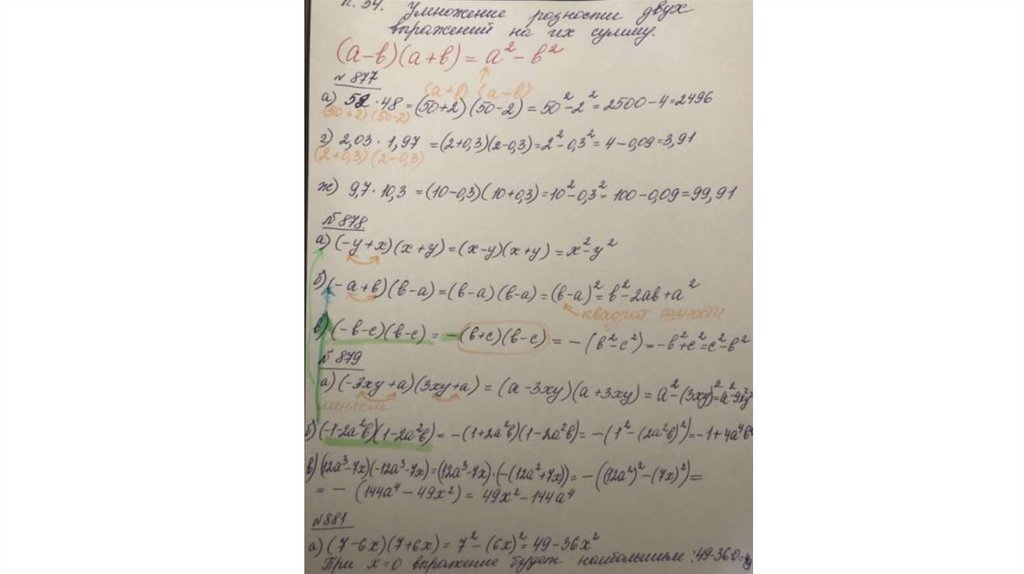 п. 34. Умножение разности двух
выражений на их сумму.
(a-в)(a+в) = a² - в²
№ 877
(a+в) (a-в)
а) 52 · 48 = (50+2)(50-2) = 50² - 2² = 2500 - 4 = 2496
(50+2)(50-2)
г) 2,03 · 1,97 = (2+0,3)(2-0,3) = 2² - 0,3² = 4 - 0,09 = 3,91
(2+0,3)(2-0,3)
ж) 9,7 · 10,3 = (10-0,3)(10+0,3) = 10² - 0,3² = 100 - 0,09 = 99,91
№ 878
а) (-y+x)(x+y) = (x-y)(x+y) = x² - y²
б) (-a+в)(в-a) = (в-a)(в-a) = (в-a)² = в² - 2ав + a²
квадрат разности
в) (-в-c)(в-c) = -(в+c)(в-c) = -(в²-c²) = -в²+c² = c²-в²
№ 879
а) (-3xy+a)(3xy+a) = (a-3xy)(a+3xy) = a² - (3xy)² = a² - 9x²y²
меняем
б) (-1-2a²в)(1-2a²в) = -(1+2a²в)(1-2a²в) = -(1² - (2a²в)²) = -1+4a⁴в²
в) (12a³-7x)(-12a³-7x) = (12a³-7x)·(-(12a²+7x)) = -((12a²)² - (7x)²) =
= -(144a⁴ - 49x²) = 49x² - 144a⁴
№ 881
а) (7-6x)(7+6x) = 7² - (6x)² = 49 - 36x²
При x=0 выражение будет наибольшим: 49-36·0=